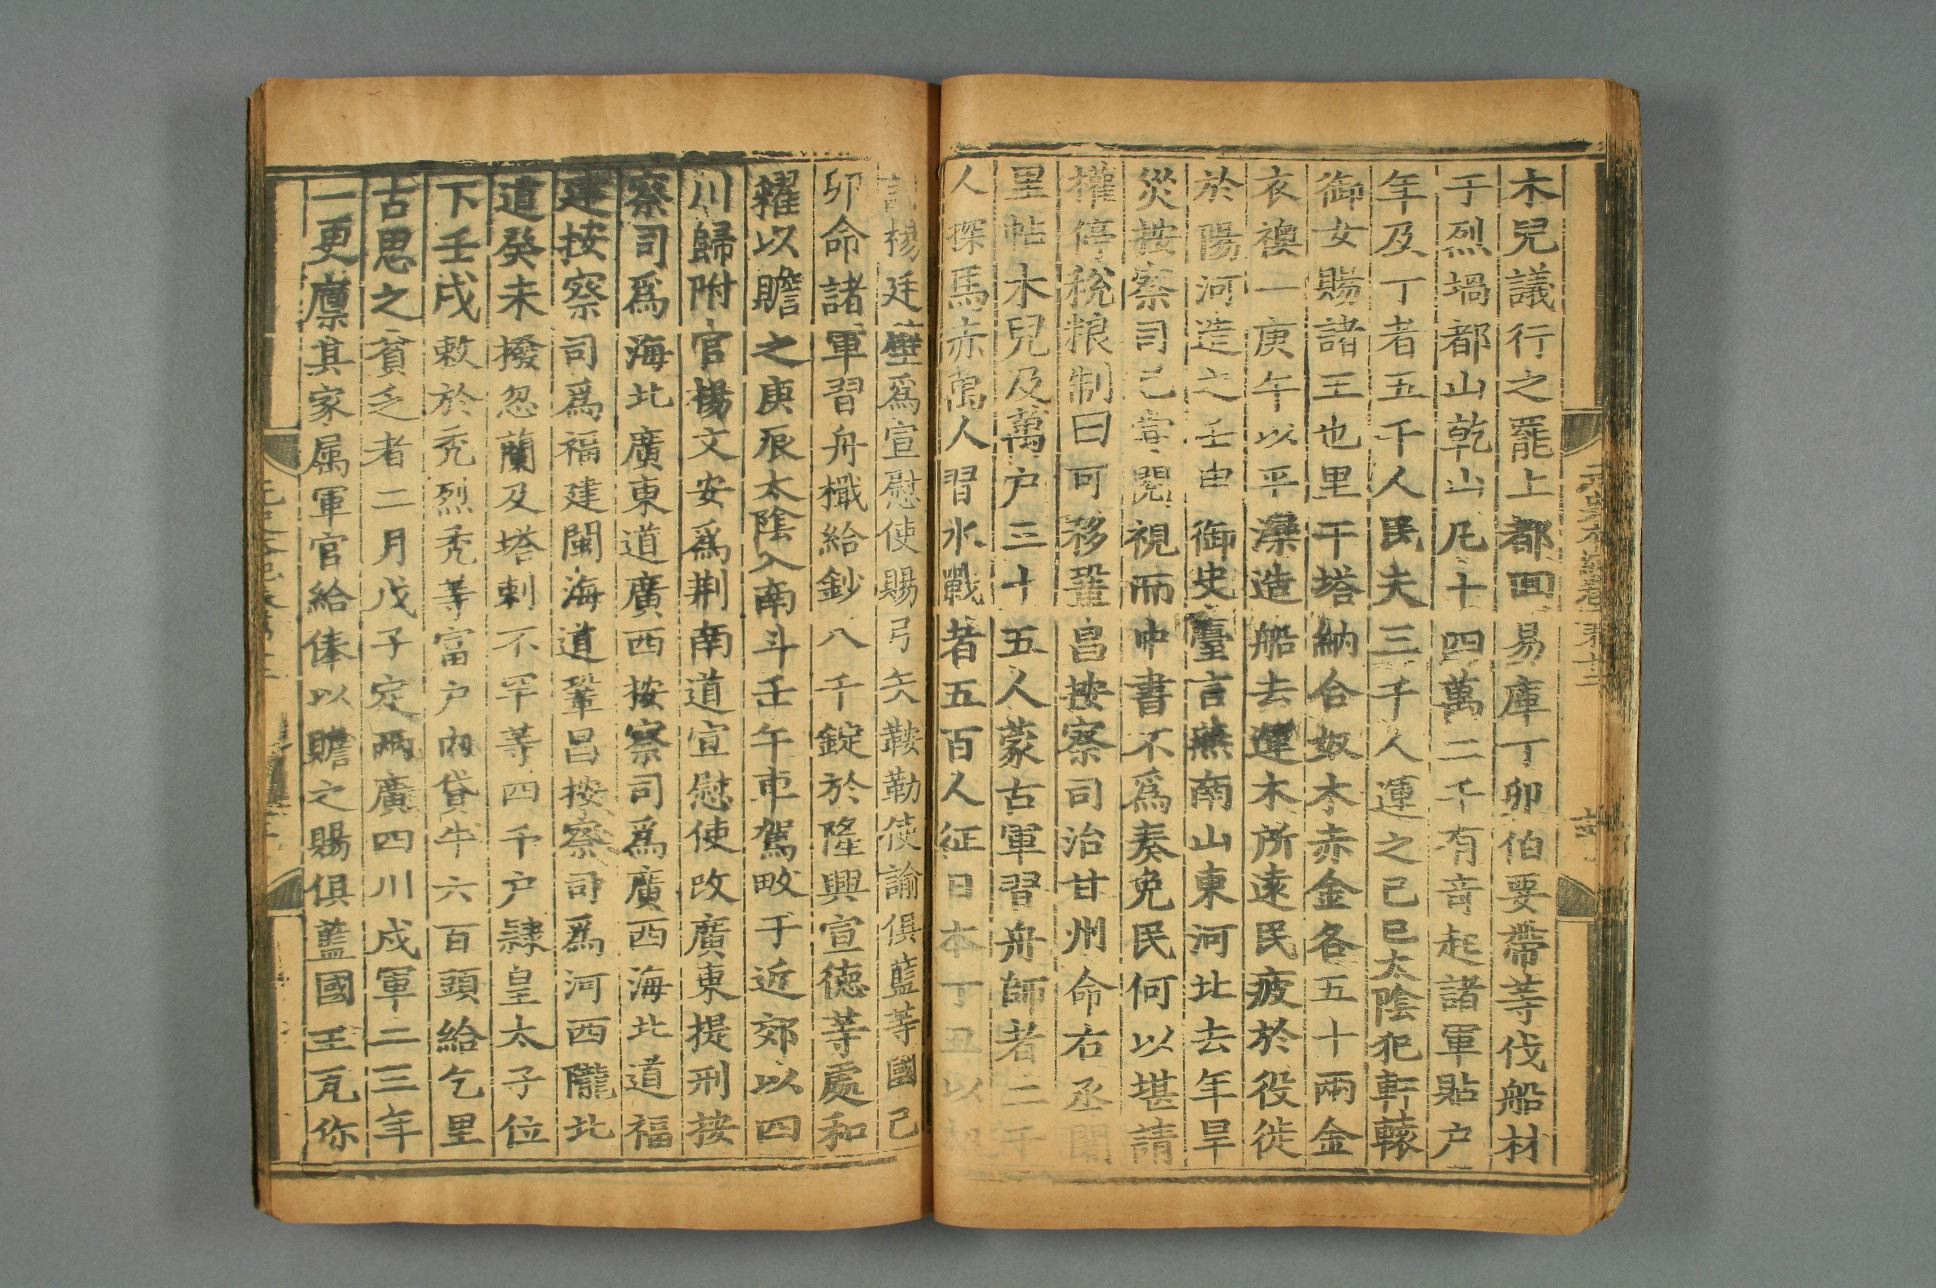 木兒議行之罷上都回易庫丁卯伯要帶等伐船材
于烈堝都山乾山凡十四萬二千有竒起諸軍貼户
年及丁者五千人民夫三千人運之己巳太陰犯軒轅
御女賜諸王也里干塔納合奴木赤金各五十兩金
衣襖一庚午以平灤造船去運木所逺民疲於役徙
於陽河造之壬申御史臺言燕南山東河北去年旱
災按察司已甞閱視而中書不爲奏免民何以堪請
權停稅粮制曰可移鞏昌按察司治甘州命右丞闍
里帖木兒及萬户三十五人蒙古軍習舟師者二千
人探馬赤萬人習水戰者五百人征日本丁丑以
招楊廷璧爲宣慰使賜弓矢鞍勒使諭俱藍等國己
卯命諸軍習舟檝給鈔八千錠於隆興宣德等處和
糴以贍之庚辰太陰入南斗壬午車駕畋于近郊以四
川歸附官楊文安爲荆南道宣慰使改廣東提刑按
察司爲海北廣東道廣西按察司爲廣西海北道福
建按察司爲福建閩海道鞏昌按察司爲河西隴北
道癸未撥忽蘭及塔剌不罕等四千户隷皇太子位
下壬戌敕於秃烈秃等富户内貸牛六百頭給乞里
古思之貧乏者二月戊子定兩廣四川戍軍二三年
一更廪其家属軍官給俸以贍之賜俱藍國王瓦你